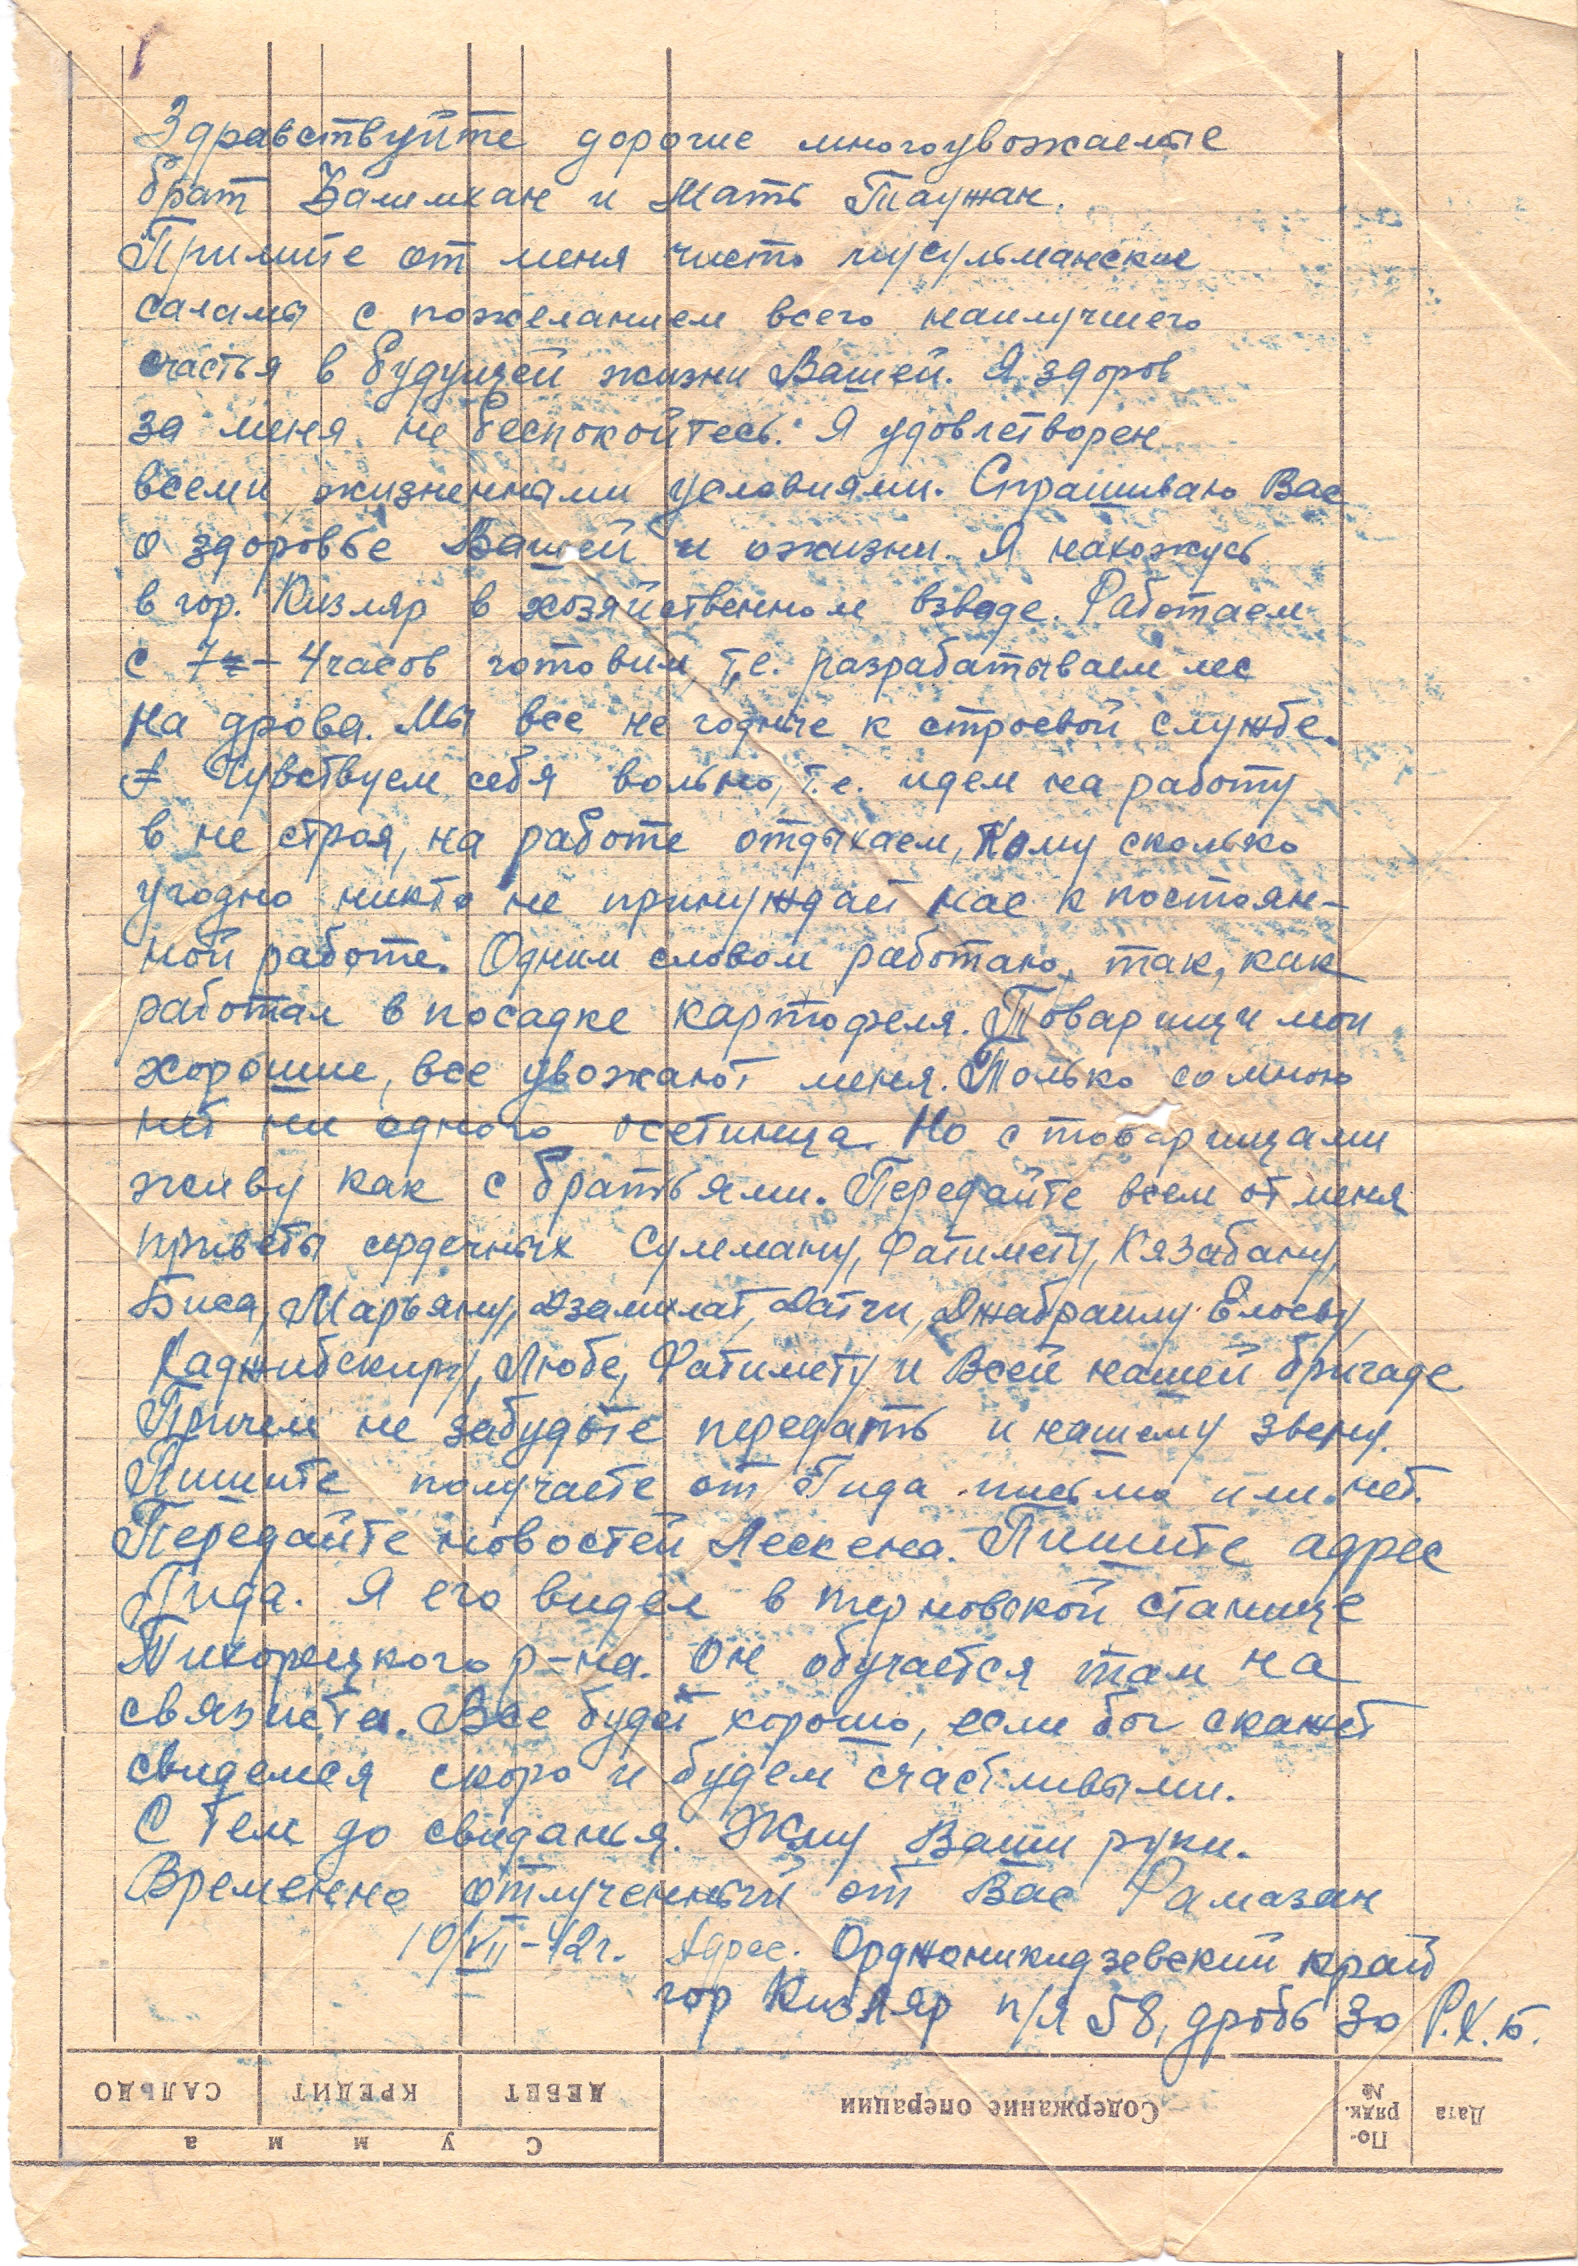 Здравствуйте дорогие многоувожаемые
брат Залимхан и Мать Таужан.
Примите от меня чисто мусульманские
саламы с пожеланием всего наилучшего
счастья в будущей жизни Вашей. Я здоров
за меня не беспокойтесь. Я удовлетворен
всеми жизненными условиями. Спрашиваю Вас
о здоровье Вашей и ожизни. Я нахожусь
в гор. Кизляр в хозяйственном взводе. Работаем
с 7 - 4 часов готовим т.е. разрабатываем лес
на дрова. Мы все не годные к строевой службе.
Чувствуем себя вольно, т.е. идем на работу
в не строя, на работе отдыхаем, кому сколько
угодно никто не принуждает нас к постоян-
ной работе. Одним словом работаю, так, как
работал в посадке картофеля. Товарищи мои
хорошие, все увожают меня. Только со мною
нет ни одного осетинца. Но с товарищами
живу как с братьями. Передайте всем от меня
приветы сердечных Сулеману, Фатимету, Кязабану,
Биса, Марьяну, Дзамилат, Датчи, Джабраилу Елоеву,
Хаджибекиру, Любе, Фатимету и Всей нашей бригаде
Причем не забудьте передать и нашему звену.
Пишите получаете от Гида письма или нет.
Передайте новостей Лескена. Пишите адрес
Гида. Я его видел в терновской станице
Тихорецкого р-на. Он обучается там на
связиста. Все будет хорошо, если бог скажет
свидемся скоро и будем счастливыми.
С тем до свиданья. Жму Ваши руки.
Временно отлученный от Вас Рамазан
10/VII-42г. Адрес. Орджоникидзевский край
гор Кизляр п/я 58, дробь 30 Р.Х.Б.
Дата
По-
рядк.
№
Содержание операции
Сумма
ДЕБЕТ
КРЕДИТ
САЛЬДО